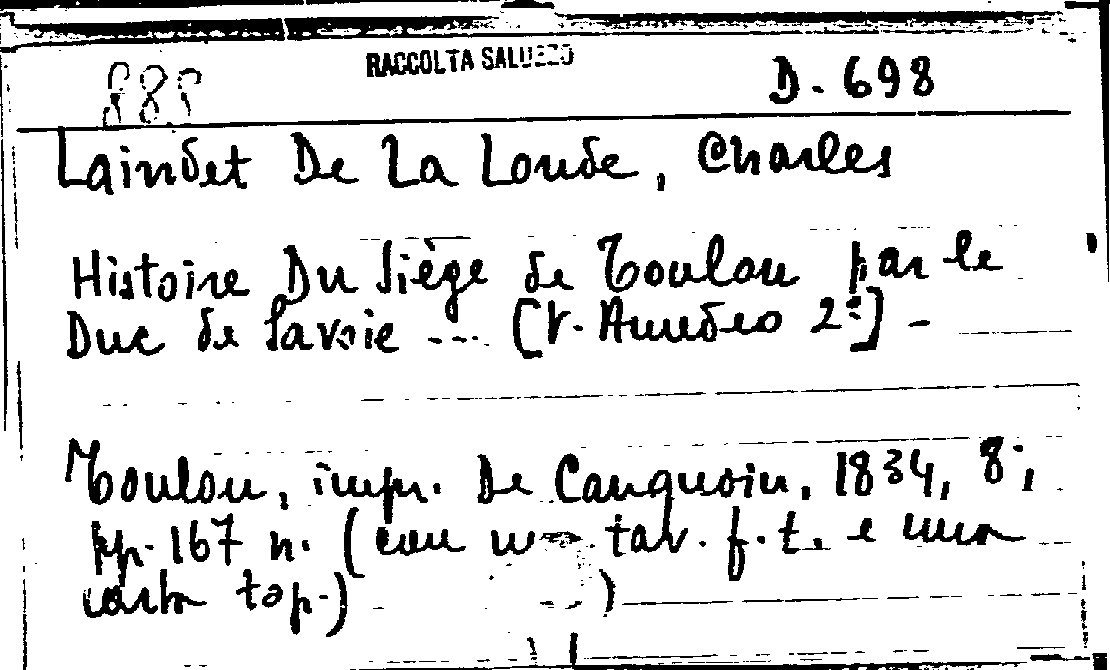 885 RACCOLTA SALUZZO D. 698
Laindet De La Londe, Charles
Histoire Du Siège de Toulon par le
Duc de Savoie ... [V. Amedeo 2º] -
Toulon, impr. De Canquoin, 1834, 8º,
pp. 167 n. (con tav. f.t. e una
carta top.)